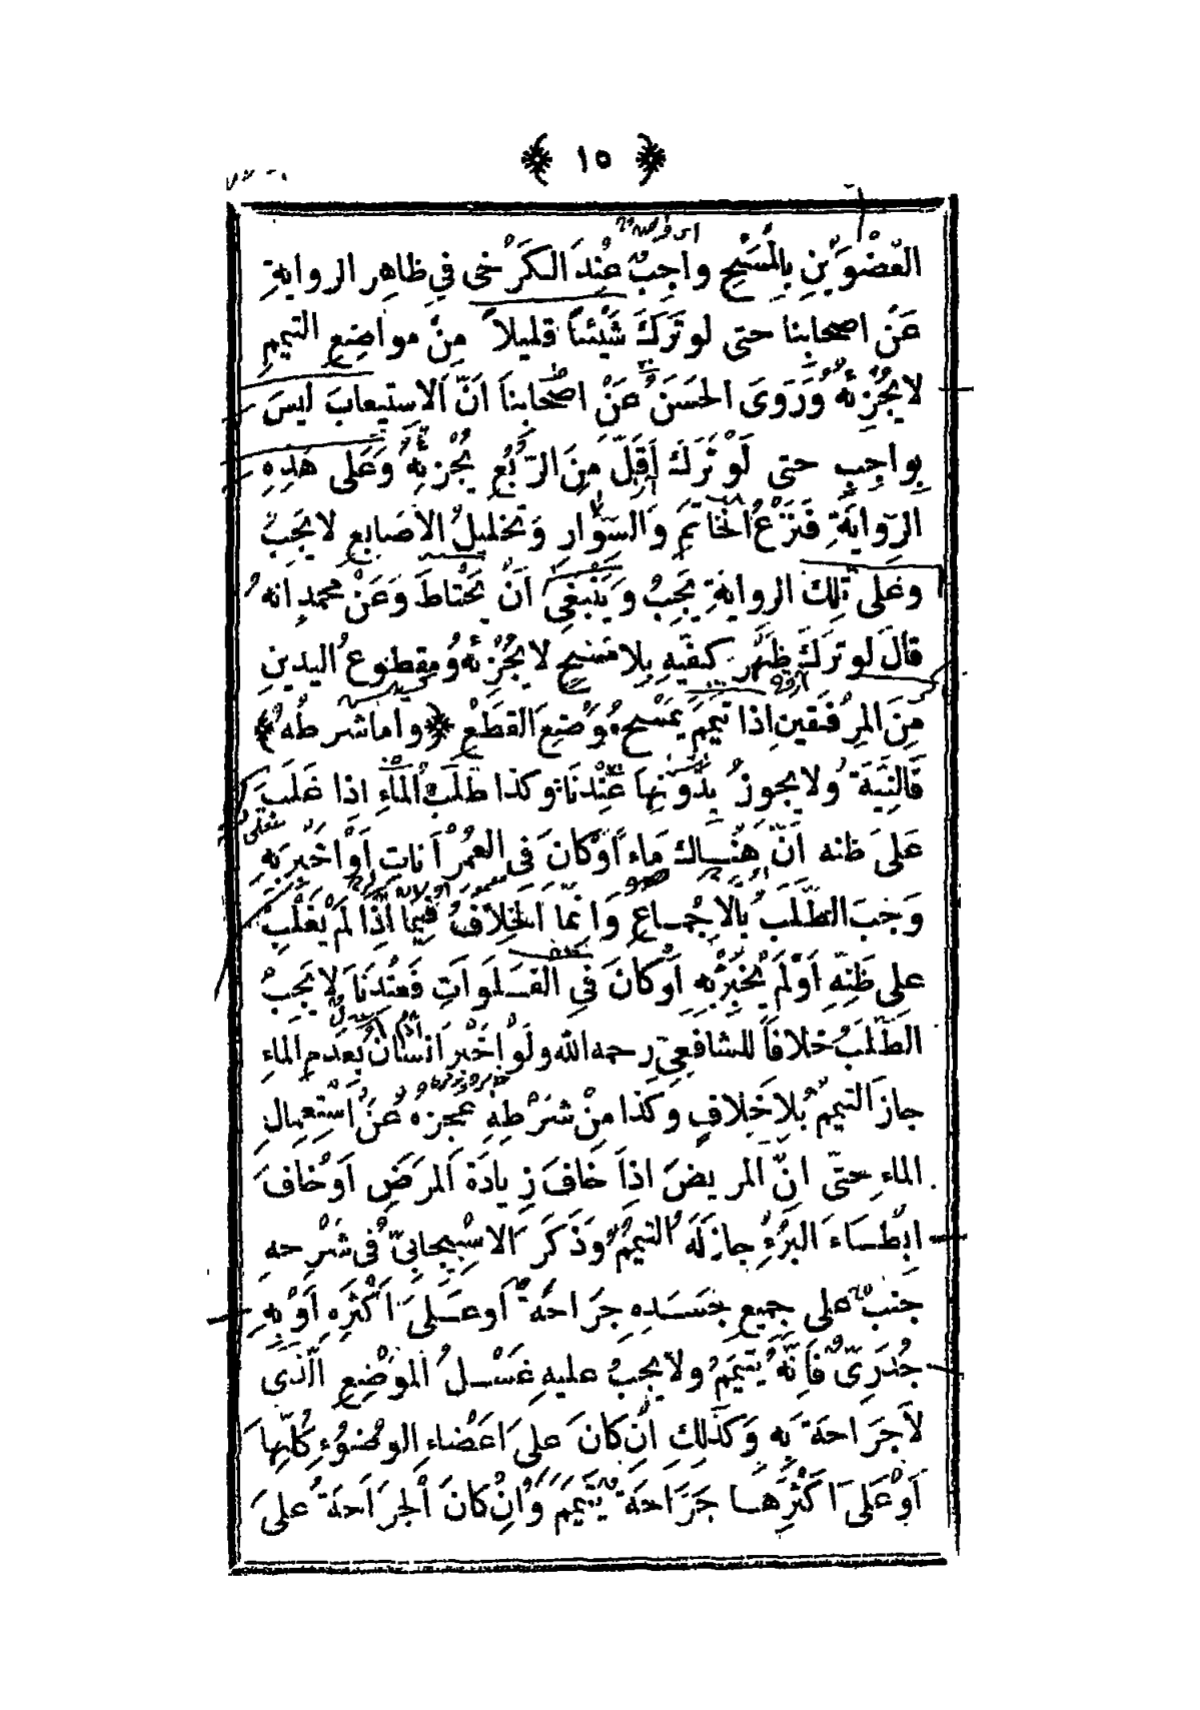 ﴿ ١٥ ﴾
العُضْوَيْنِ بِالْمَسْحِ واجِبٌ عِنْدَ الكَرْخى فِي ظاهِر الروايةِ
عَنْ اصحابِنا حتى لو تَرَكَ شَيْئاً قليلاً مِنْ مواضِعِ التيمم
لا يُجْزِئُهُ وَرَوَى الحَسَنُ عَنْ اصْحابِناَ اَنَّ الاِستيعابَ ليسَ
بِواجِبٍ حتى لَوْ تَرَكَ اَقَلَّ مِنَ الرُّبْعِ يُجْزِئُهُ وَعَلى هَذِهِ
الرِّوايَةِ فَنَزْعُ الْخاتَمِ وَالسِّوَارِ وَتخليلُ الاَصابِعِ لا يَجِبُ
وعَلى تِلكَ الروايةِ يَجِبُ وَيَنْبَغِى اَنْ يَحْتاطَ وَعَنْ محمدٍ انهُ
قالَ لو تَرَكَ ظَهْرَ كَفَّيْهِ بِلا مَسْحٍ لا يُجْزِئُهُ وَمقطوعُ اليدينِ
مِنَ المِرْفَقينِ اِذا تَيَمَّمَ يَمْسَحُ مَوْضِعَ القَطْعِ ﴿ واما شرطُهُ ﴾
فَالنِّيَّةُ ولا يجوزُ بِدُونِها عِنْدَنَا وكذا طَلَبُ الْمَاءِ اِذا غَلَبَ
عَلىَ ظنه اَنَّ هُنَاكَ مَاءً اَوْ كانَ فى العُمْرَاناتِ اَوْ اُخْبِرَ بِهِ
وَجَبَ الطَّلَبُ بالْاِجْمَاعِ وَانَّما الْخِلاَفُ فيما اِذا لَمْ يَغْلِبْ
على ظَنِّهِ اَوْ لَمْ يُخْبَرْ بِهِ اَوْ كانَ فى الفَلَوَاتِ فَعِنْدَنَا لا يَجِبُ
الطَّلَبُ خلافاً للشافعىِّ رحمه الله ولَوْ اَخْبَرَ انسانٌ بِعَدَمِ الماءِ
جازَ التيممُ بِلاَ خِلافٍ وكذا مِنْ شَرْطِهِ عَجزهُ عَنْ اسْتِعمالِ
الماءِ حتّى انَّ المريضَ اذاَ خافَ زِيادَةَ المرَضِ اَوْ خافَ
اِبْطَاءَ البُرْءِ جازَ لَهُ التيمُّمُ وَذَكَرَ الاِسْبِيجابىُّ فى شَرْحِهِ
جُنُبٌ على جميعِ جَسَدِهِ جِرَاحَةٌ اَو عَلىَ اَكْثَرِهِ اَوْ بِهِ
جُدَرِىٌّ فَاِنَّهُ يَتَيَمَّمُ ولا يجبُ عليهِ غَسْلُ المَوْضِعِ الَّذى
لاَ جِرَاحَةَ بِهِ وَكَذَلِكَ اِنْ كانَ عَلىَ اَعْضَاءِ الوُضُوءِ كُلِّها
اَوْ عَلىَ اَكْثَرِهَا جِرَاحَةٌ يَتَيَمَّمُ وَاِنْ كانَ الجِرَاحَةُ علىَ